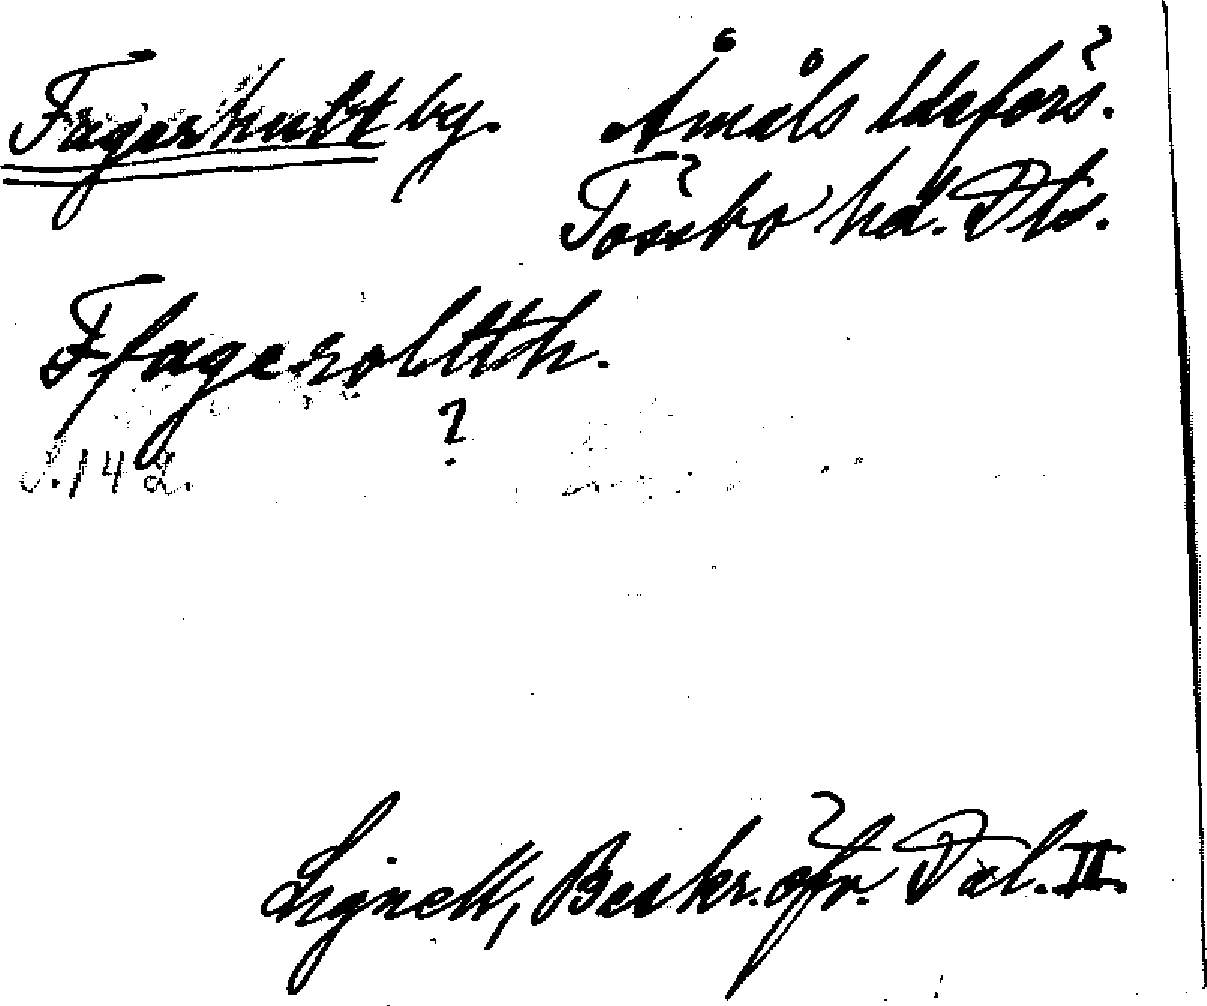 Fagerhult by. Åmåls ldsförs.
Tössbo hd. Dls.
Ffagerollth.
?
S. 142.
Lignell, Beskr. öfv. Dal. II.